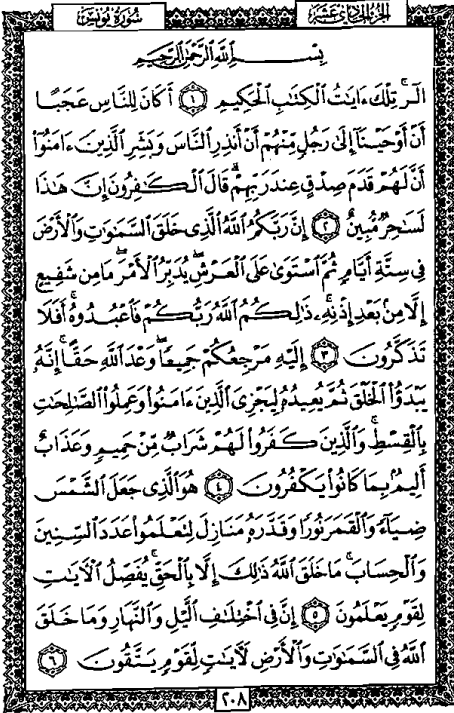 سُورَةُ يُونُسَ
الجُزْءُ الحَادِي عَشَرَ
بِسْمِ اللَّهِ الرَّحْمَٰنِ الرَّحِيمِ
الٓرۚ تِلْكَ ءَايَٰتُ ٱلْكِتَٰبِ ٱلْحَكِيمِ ١ أَكَانَ لِلنَّاسِ عَجَبًا
أَنْ أَوْحَيْنَآ إِلَىٰ رَجُلٍ مِّنْهُمْ أَنْ أَنذِرِ ٱلنَّاسَ وَبَشِّرِ ٱلَّذِينَ ءَامَنُوٓا۟
أَنَّ لَهُمْ قَدَمَ صِدْقٍ عِندَ رَبِّهِمْۗ قَالَ ٱلْكَٰفِرُونَ إِنَّ هَٰذَا
لَسَٰحِرٌ مُّبِينٌ ٢ إِنَّ رَبَّكُمُ ٱللَّهُ ٱلَّذِى خَلَقَ ٱلسَّمَٰوَٰتِ وَٱلْأَرْضَ
فِى سِتَّةِ أَيَّامٍ ثُمَّ ٱسْتَوَىٰ عَلَى ٱلْعَرْشِۖ يُدَبِّرُ ٱلْأَمْرَۖ مَا مِن شَفِيعٍ
إِلَّا مِنۢ بَعْدِ إِذْنِهِۦۚ ذَٰلِكُمُ ٱللَّهُ رَبُّكُمْ فَٱعْبُدُوهُۚ أَفَلَا
تَذَكَّرُونَ ٣ إِلَيْهِ مَرْجِعُكُمْ جَمِيعًاۖ وَعْدَ ٱللَّهِ حَقًّاۚ إِنَّهُۥ
يَبْدَؤُا۟ ٱلْخَلْقَ ثُمَّ يُعِيدُهُۥ لِيَجْزِىَ ٱلَّذِينَ ءَامَنُوا۟ وَعَمِلُوا۟ ٱلصَّٰلِحَٰتِ
بِٱلْقِسْطِۚ وَٱلَّذِينَ كَفَرُوا۟ لَهُمْ شَرَابٌ مِّنْ حَمِيمٍ وَعَذَابٌ
أَلِيمٌۢ بِمَا كَانُوا۟ يَكْفُرُونَ ٤ هُوَ ٱلَّذِى جَعَلَ ٱلشَّمْسَ
ضِيَآءً وَٱلْقَمَرَ نُورًا وَقَدَّرَهُۥ مَنَازِلَ لِتَعْلَمُوا۟ عَدَدَ ٱلسِّنِينَ
وَٱلْحِسَابَۚ مَا خَلَقَ ٱللَّهُ ذَٰلِكَ إِلَّا بِٱلْحَقِّۚ يُفَصِّلُ ٱلْءَايَٰتِ
لِقَوْمٍ يَعْلَمُونَ ٥ إِنَّ فِى ٱخْتِلَٰفِ ٱلَّيْلِ وَٱلنَّهَارِ وَمَا خَلَقَ
ٱللَّهُ فِى ٱلسَّمَٰوَٰتِ وَٱلْأَرْضِ لَءَايَٰتٍ لِّقَوْمٍ يَتَّقُونَ ٦
٢٠٨